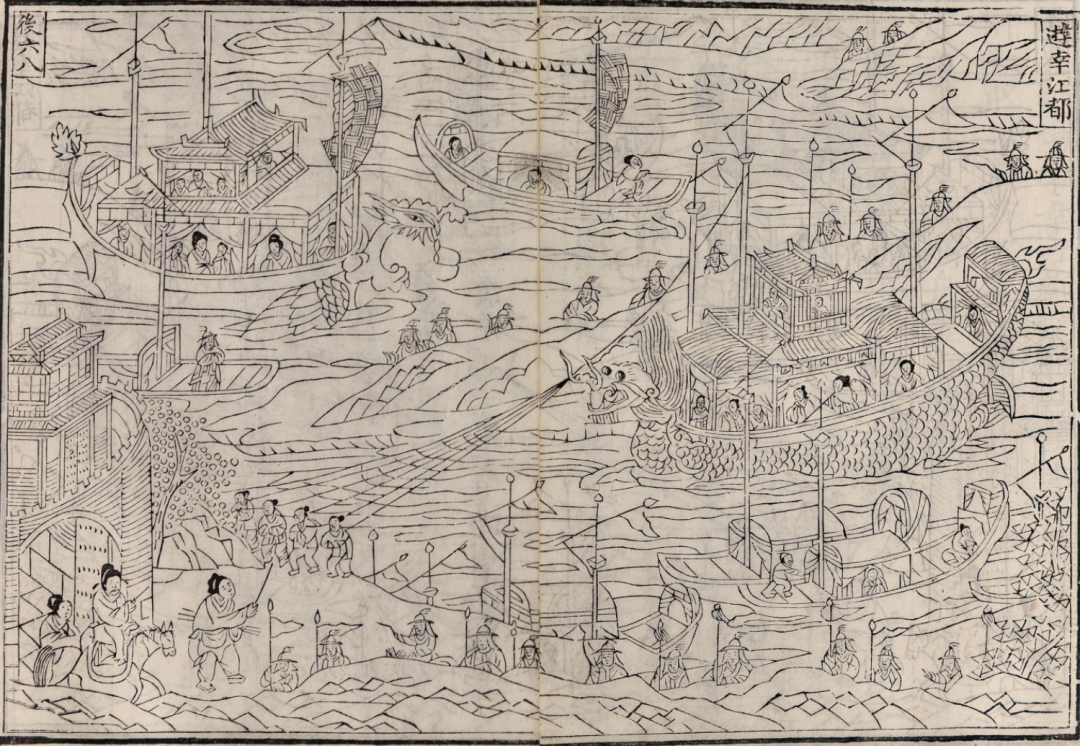 遊幸江都
後六八